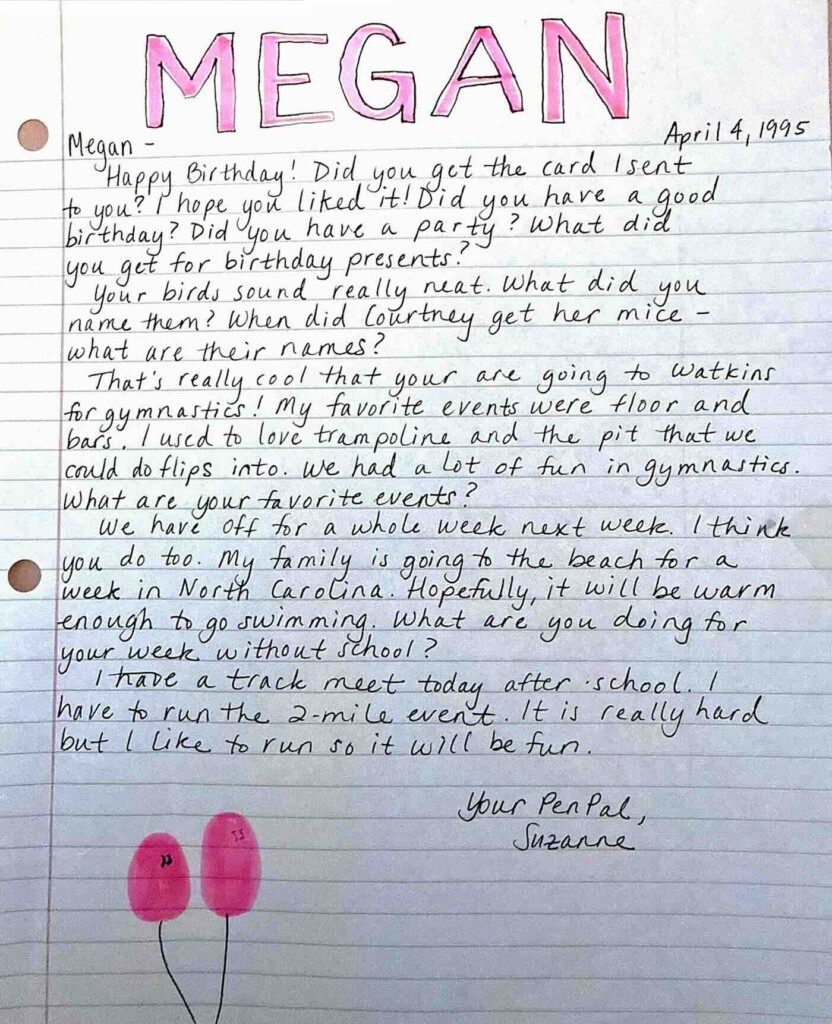 MEGAN
April 4, 1995
Megan -
Happy Birthday! Did you get the card I sent
to you? I hope you liked it! Did you have a good
birthday? Did you have a party? What did
you get for birthday presents?
Your birds sound really neat. What did you
name them? When did Courtney get her mice -
what are their names?
That's really cool that your are going to Watkins
for gymnastics! My favorite events were floor and
bars. I used to love trampoline and the pit that we
could do flips into. We had a lot of fun in gymnastics.
What are your favorite events?
We have off for a whole week next week. I think
you do too. My family is going to the beach for a
week in North Carolina. Hopefully, it will be warm
enough to go swimming. What are you doing for
your week without school?
I have a track meet today after school. I
have to run the 2-mile event. It is really hard
but I like to run so it will be fun.
Your PenPal,
Suzanne